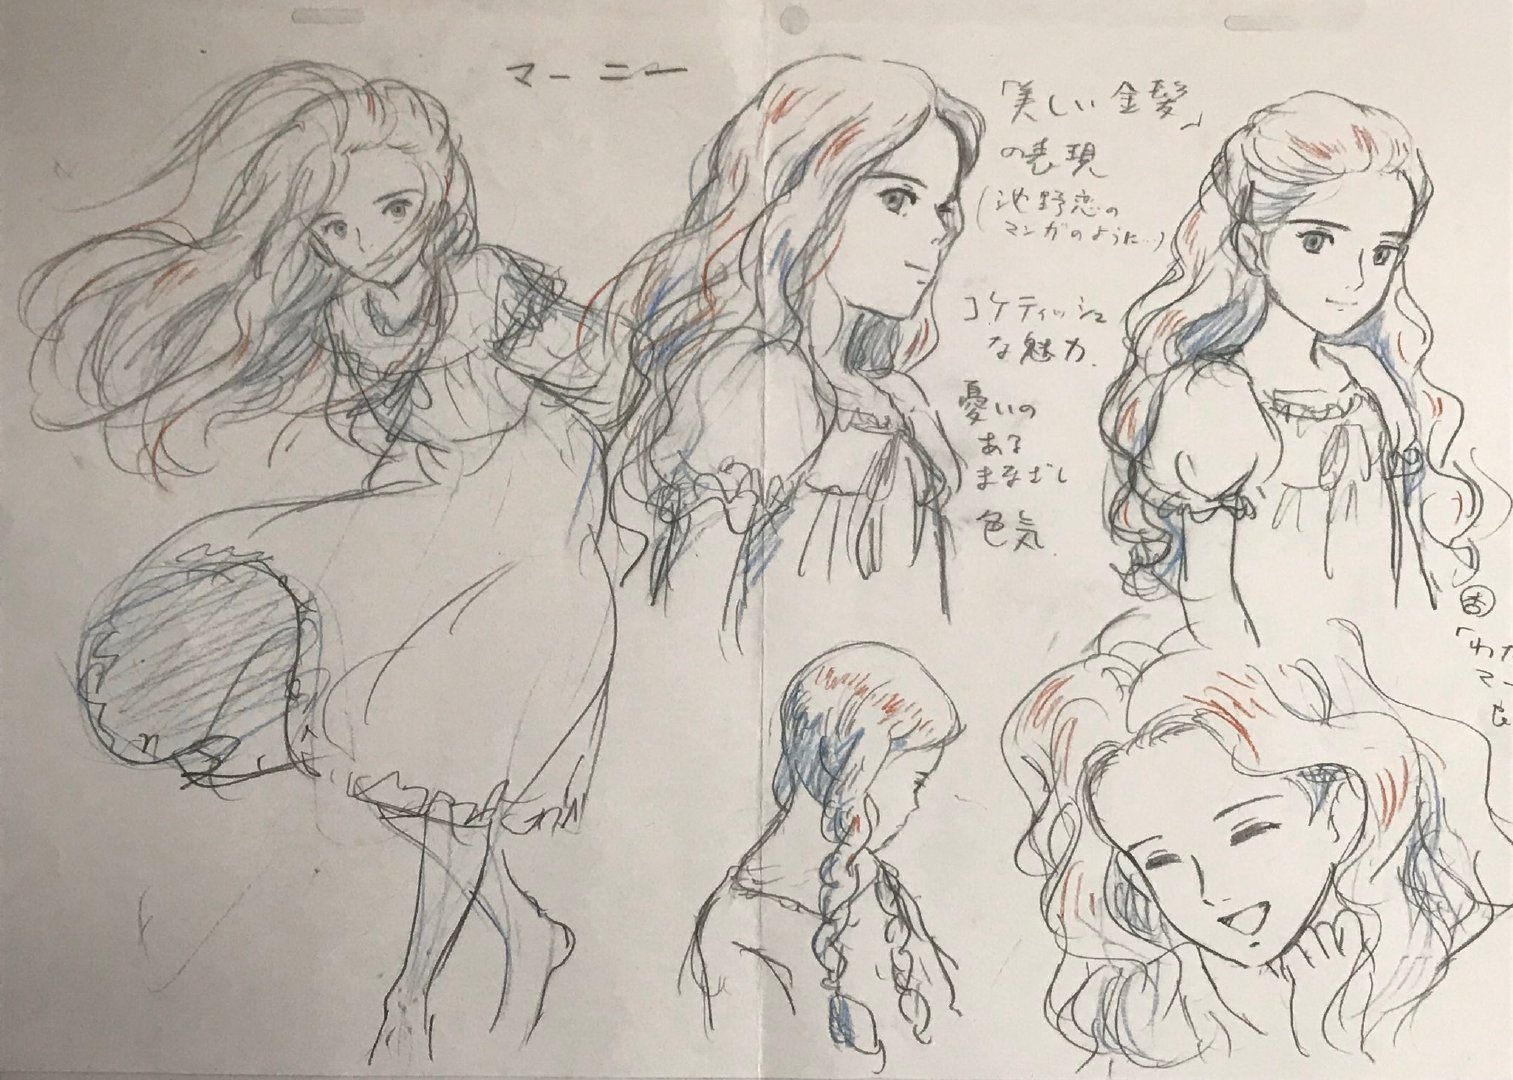 マーニー
「美しい金髪」
の表現
(池野恋の
マンガのように…)
コケティッシュ
な魅力.
憂いの
ある
まなざし
色気.
杏
「わた
マー